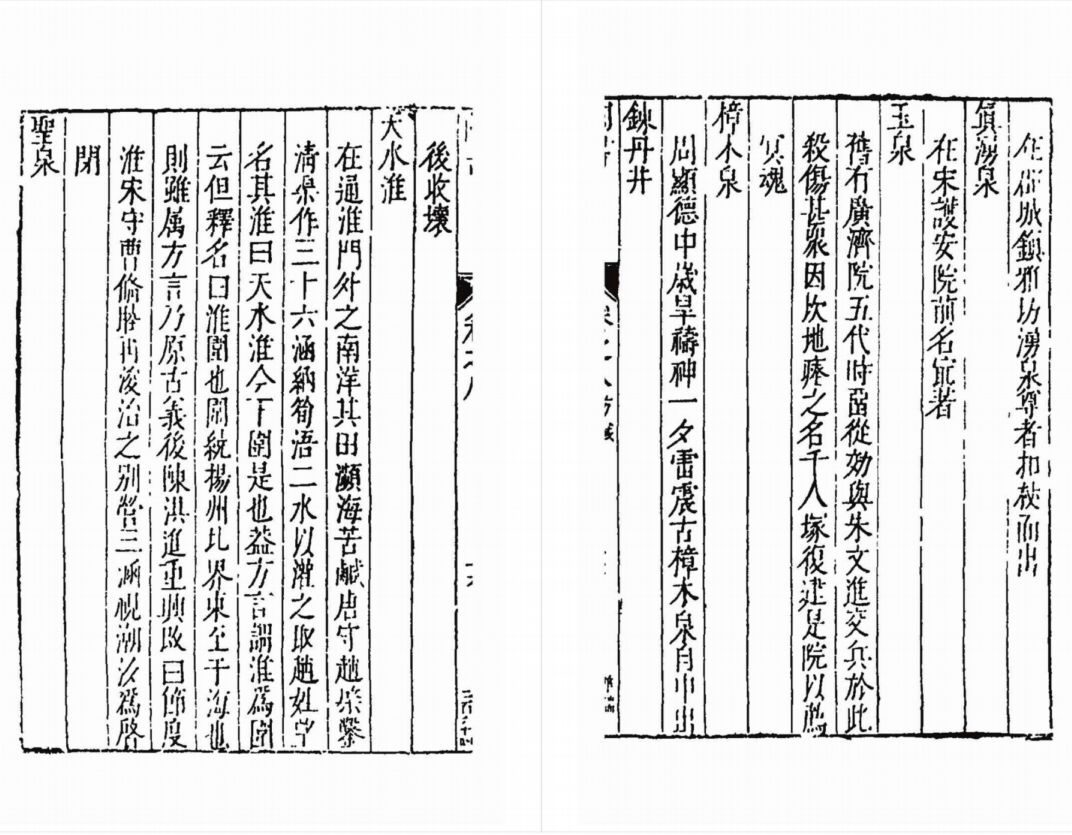 在郡城鎮雅坊湧泉尊者扣杖而出
鎮湧泉
在宋護安院前名宦著
玉泉
舊有廣濟院五代時留從効與朱文進交兵於此
殺傷甚眾因坎地瘞之名千人塚復建是院以薦
冥魂
樟木泉
周顯德中歲旱禱神一夕雷震古樟木泉自中出
鍊丹井
卷之八
後收壞
天水淮
在通淮門外之南洋其田瀕海苦鹹唐守趙棨鑿
清渠作三十六涵納筍浯二水以灌之取趙姓望
名其淮曰天水淮今下圍是也葢方言謂淮為圍
云但釋名曰淮圍也圍繞揚州北界東至于海也
則雖属方言乃原古義後陳洪進重興改曰節度
淮宋守曹脩睦再浚治之别營三涵視潮汐為啓
閉
聖泉